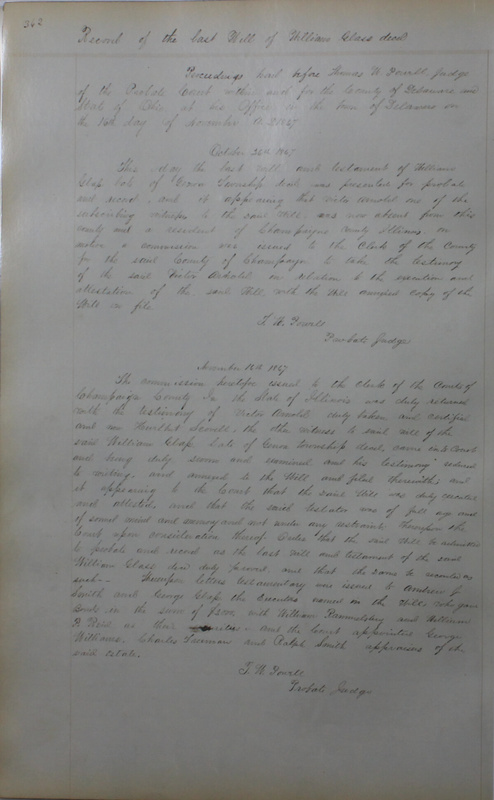 362
Record of the last Will of William Glass decd
Proceedings had before Thomas W. Powell Judge
of the Probate Court within and for the County of Delaware and
State of Ohio at his Office in the town of Delaware on
the 16th day of November A.D. 1867
October 26th 1867
This day the last will and testament of William
Glass late of Brown Township decd was presented for probate
and record, and it appearing that Victor Arnold one of the
subscribing witnesses to the said Will was now absent from this
county and a resident of Champaign County Illinois. On
motion a commission was issued to the Clerk of the County
for the said County of Champaign to take the testimony
of the said Victor Arnold in relation to the execution and
attestation of the said Will, with the Will annexed copy of the
Will on file
T. W. Powell
Probate Judge
November 16th 1867
The commission heretofore issued to the clerk of the Courts of
Champaign County in the State of Illinois was duly returned
with the testimony of Victor Arnold duly taken and certified
and now Hamlet Sewell, the other witness to said will of the
said William Glass late of Brown township decd, came into Court
and being duly sworn and examined and his testimony reduced
to writing, and annexed to the Will and filed therewith; and
it appearing to the Court that the said Will was duly executed
and attested, and that the said testator was of full age and
of sound mind and memory and not under any restraint thereupon the
Court upon consideration thereof Order that the said Will be admitted
to probate and record as the last will and testament of the said
William Glass decd duly proved and that the same be recorded as
such - Thereupon letters testamentary was issued to Andrew J
Smith and George Glass the Executors named in the Will; who gave
Bond in the sum of with William and William
P. Reid as their and the Court appointed George
Williams, Charles and Ralph Smith appraisers of the
said estate.
T. W. Powell
Probate Judge